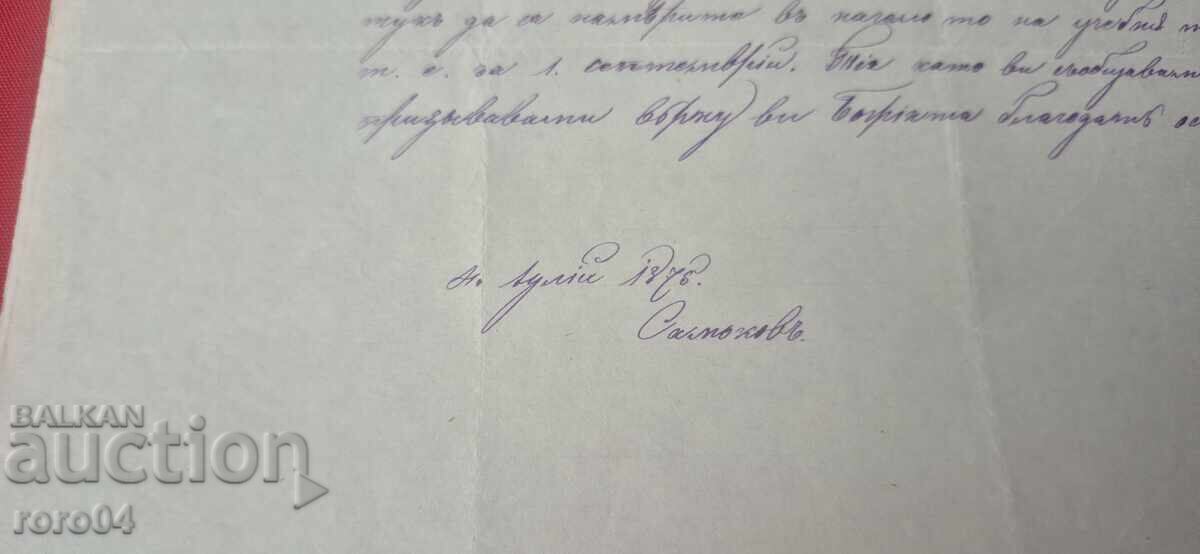 тукъ да са намѣрите въ начало то на учебния
т. е. за 1. септемврій. Тіа като ви съобщаваме
призовавами върху ви Божіята благодать ос
4. Іулій 1878.
Самоковъ.
BALKAN
auction
roro04